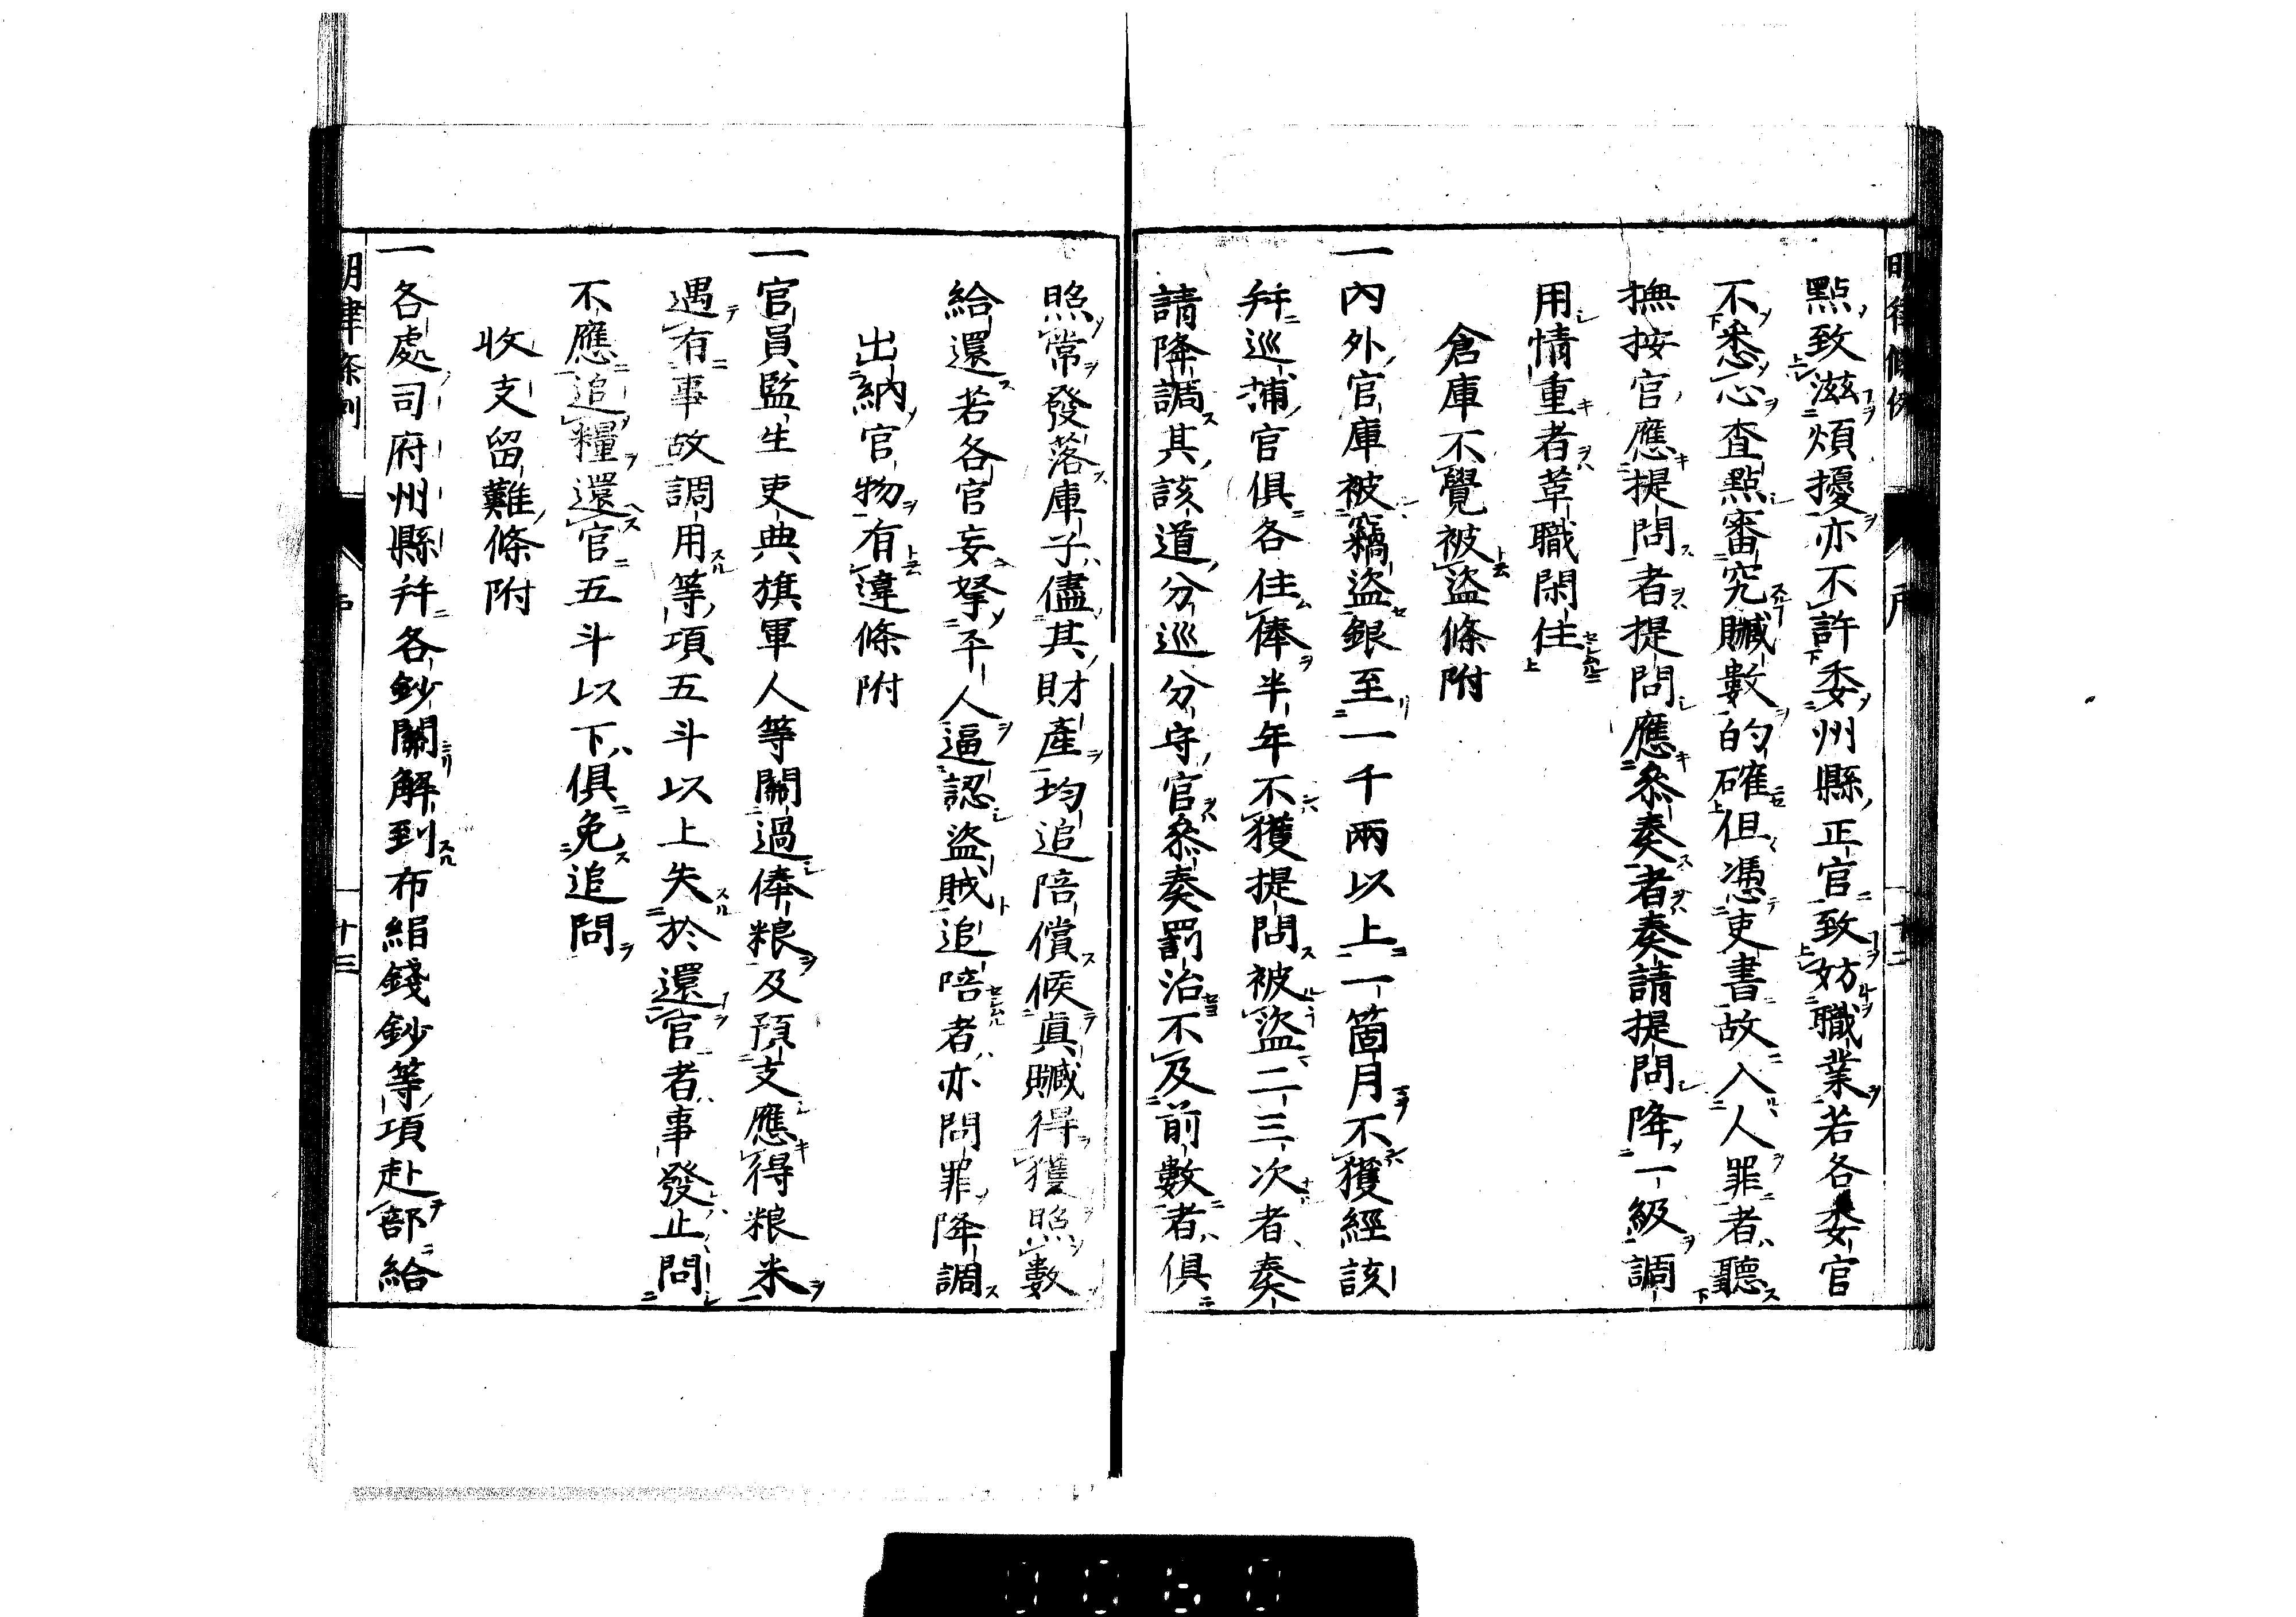 點致滋煩擾亦不許委州縣正官致妨職業若各委官
不悉心査點審究贓數的確但憑吏書故入人罪者聽
撫按官應提問者提問應叅奏者奏請提問降一級調
用情重者革職閑住
倉庫不覺被盜條附
一內外官庫被竊盜銀至一千兩以上一箇月不獲經該
幷巡捕官俱各住俸半年不獲提問被盜二三次者奏
請降調其該道分巡分守官叅奏罰治不及前數者俱
照常發落庫子儘其財產均追陪償候眞贓得獲照數
給還若各官妄拏平人逼認盜賊追陪者亦問罪降調
出納官物有違條附
一官員監生吏典旗軍人等關過俸粮及預支應得粮米
遇有事故調用等項五斗以上失於還官者事發止問
不應追糧還官五斗以下俱免追問
收支留難條附
一各處司府州縣幷各鈔關解到布絹錢鈔等項赴部給
明律條例
戶
十三